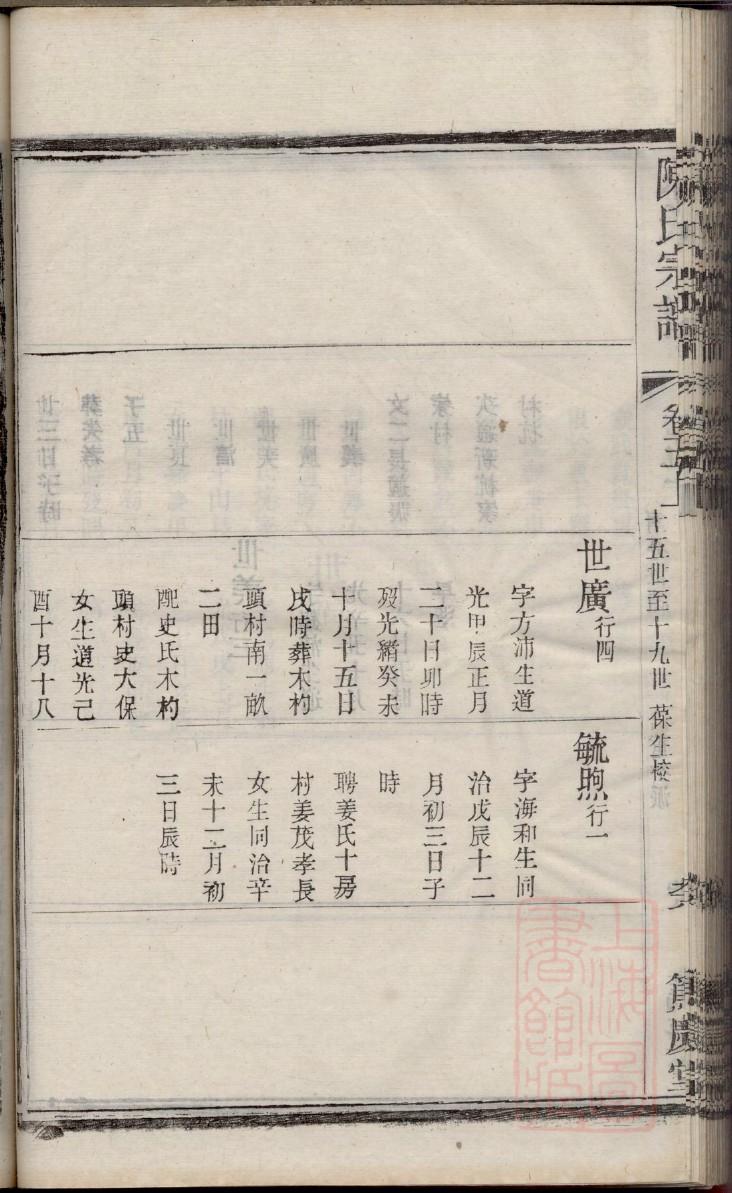 陳氏宗譜
卷三十
十五世至十九世 葆生校派
篤慶堂
世廣行四
字方沛生道
光甲辰正月
二十日卯時
歿光緒癸未
十月十五日
戌時葬木杓
頭村南一畝
二田
配史氏木杓
頭村史大保
女生道光己
酉十月十八
毓煦行一
字海和生同
治戊辰十二
月初三日子
時
聘姜氏十房
村姜茂孝長
女生同治辛
未十二月初
三日辰時
上海圖書館藏